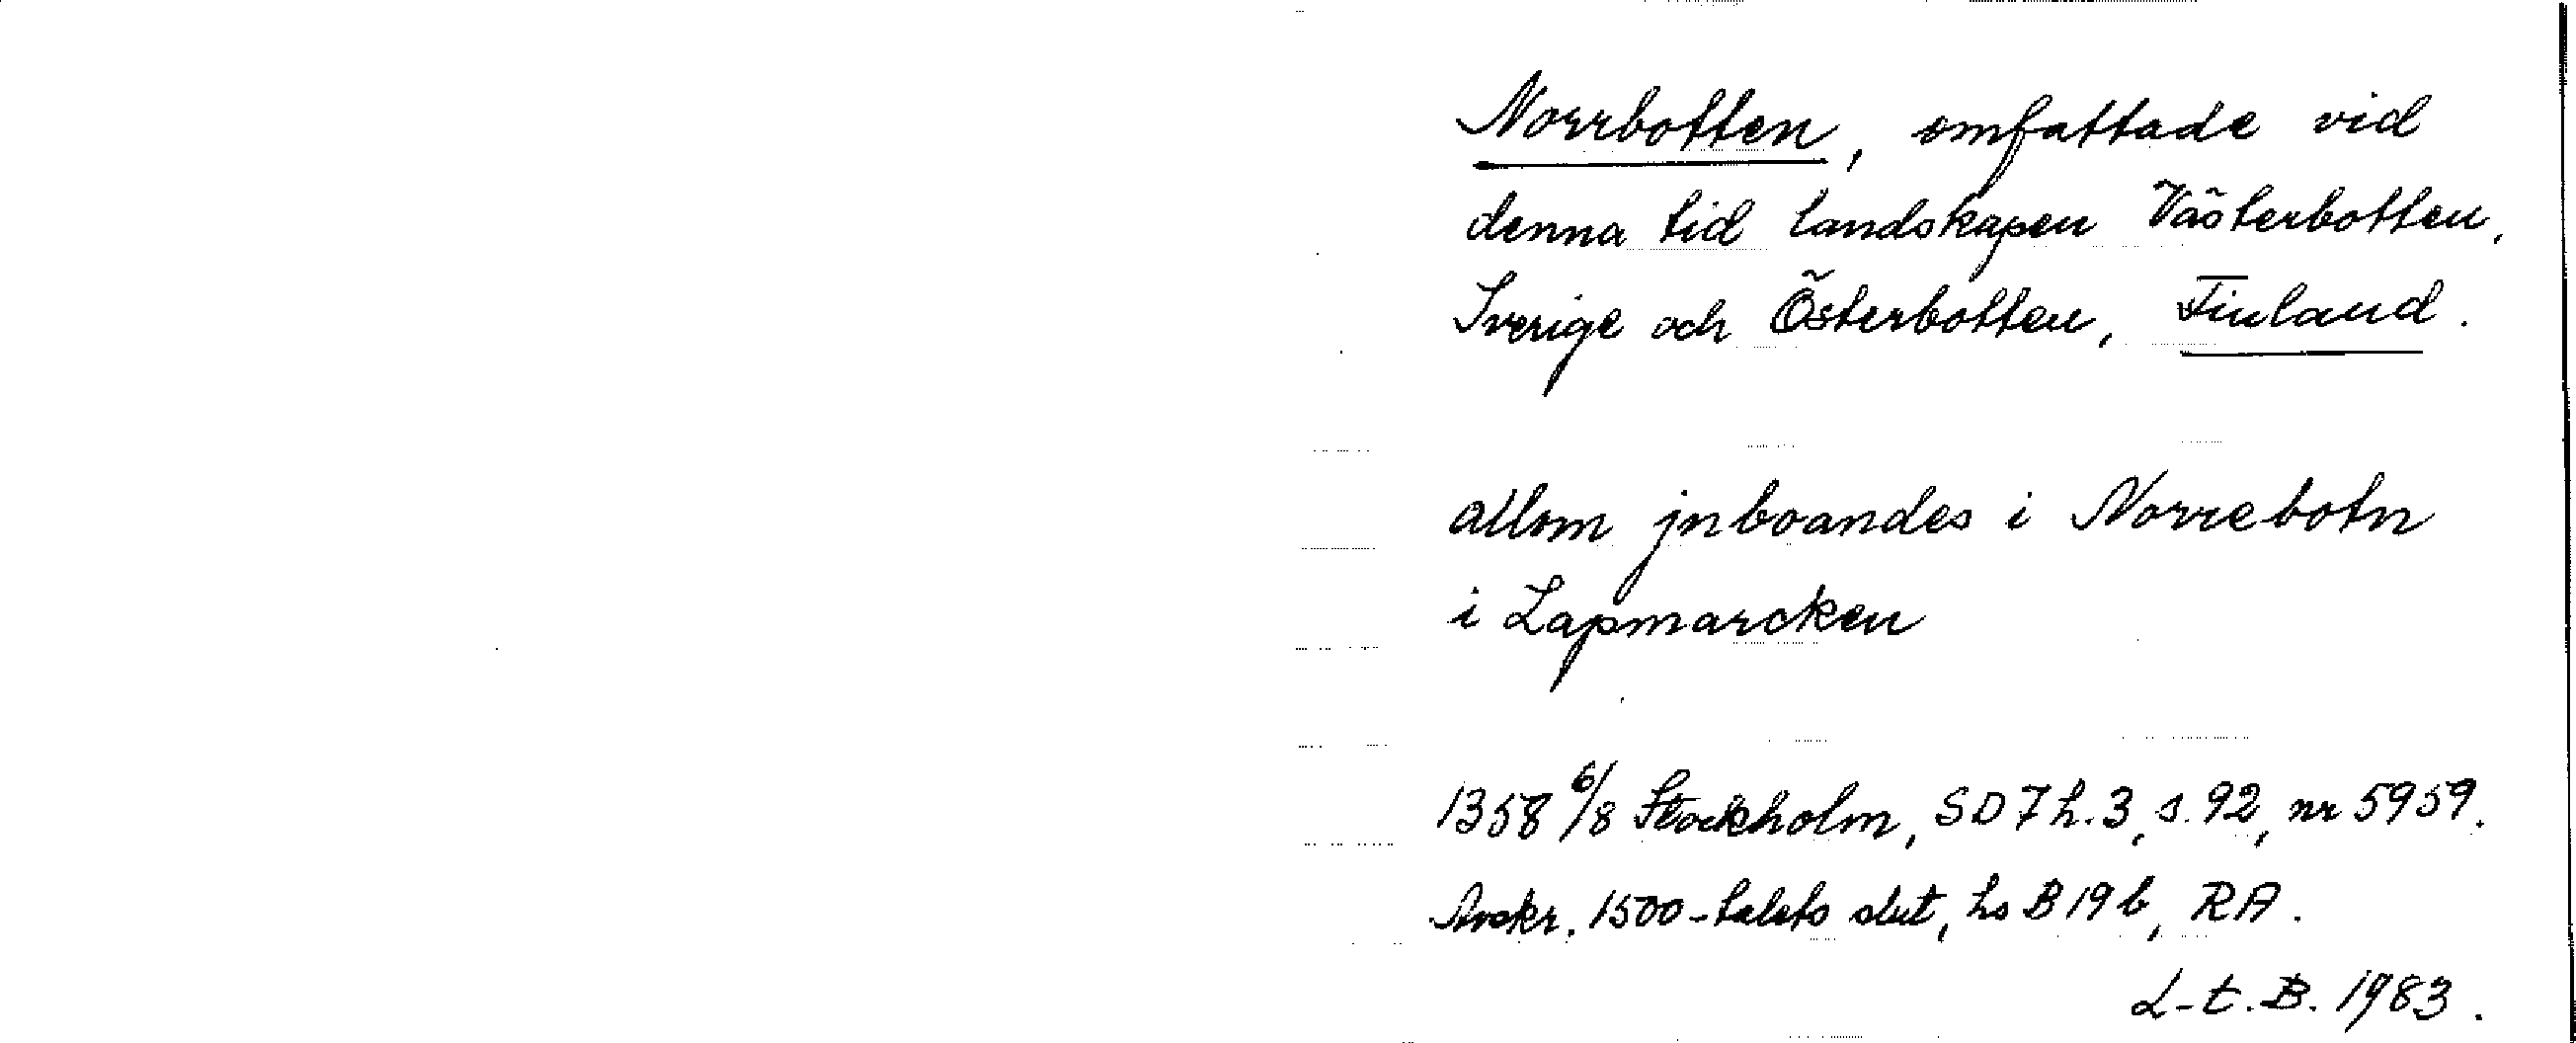 Norrbotten, omfattade vid
denna tid landskapen Västerbotten,
Sverige och Österbotten, Finland.
allom jnboandes i Norrebotn
i Lapmarcken
1358 6/8 Stockholm, SD 7 h. 3, s. 92, nr 5959.
Avskr. 1500-talets slut, hs B 19 b, RA.
L-t. B. 1983.